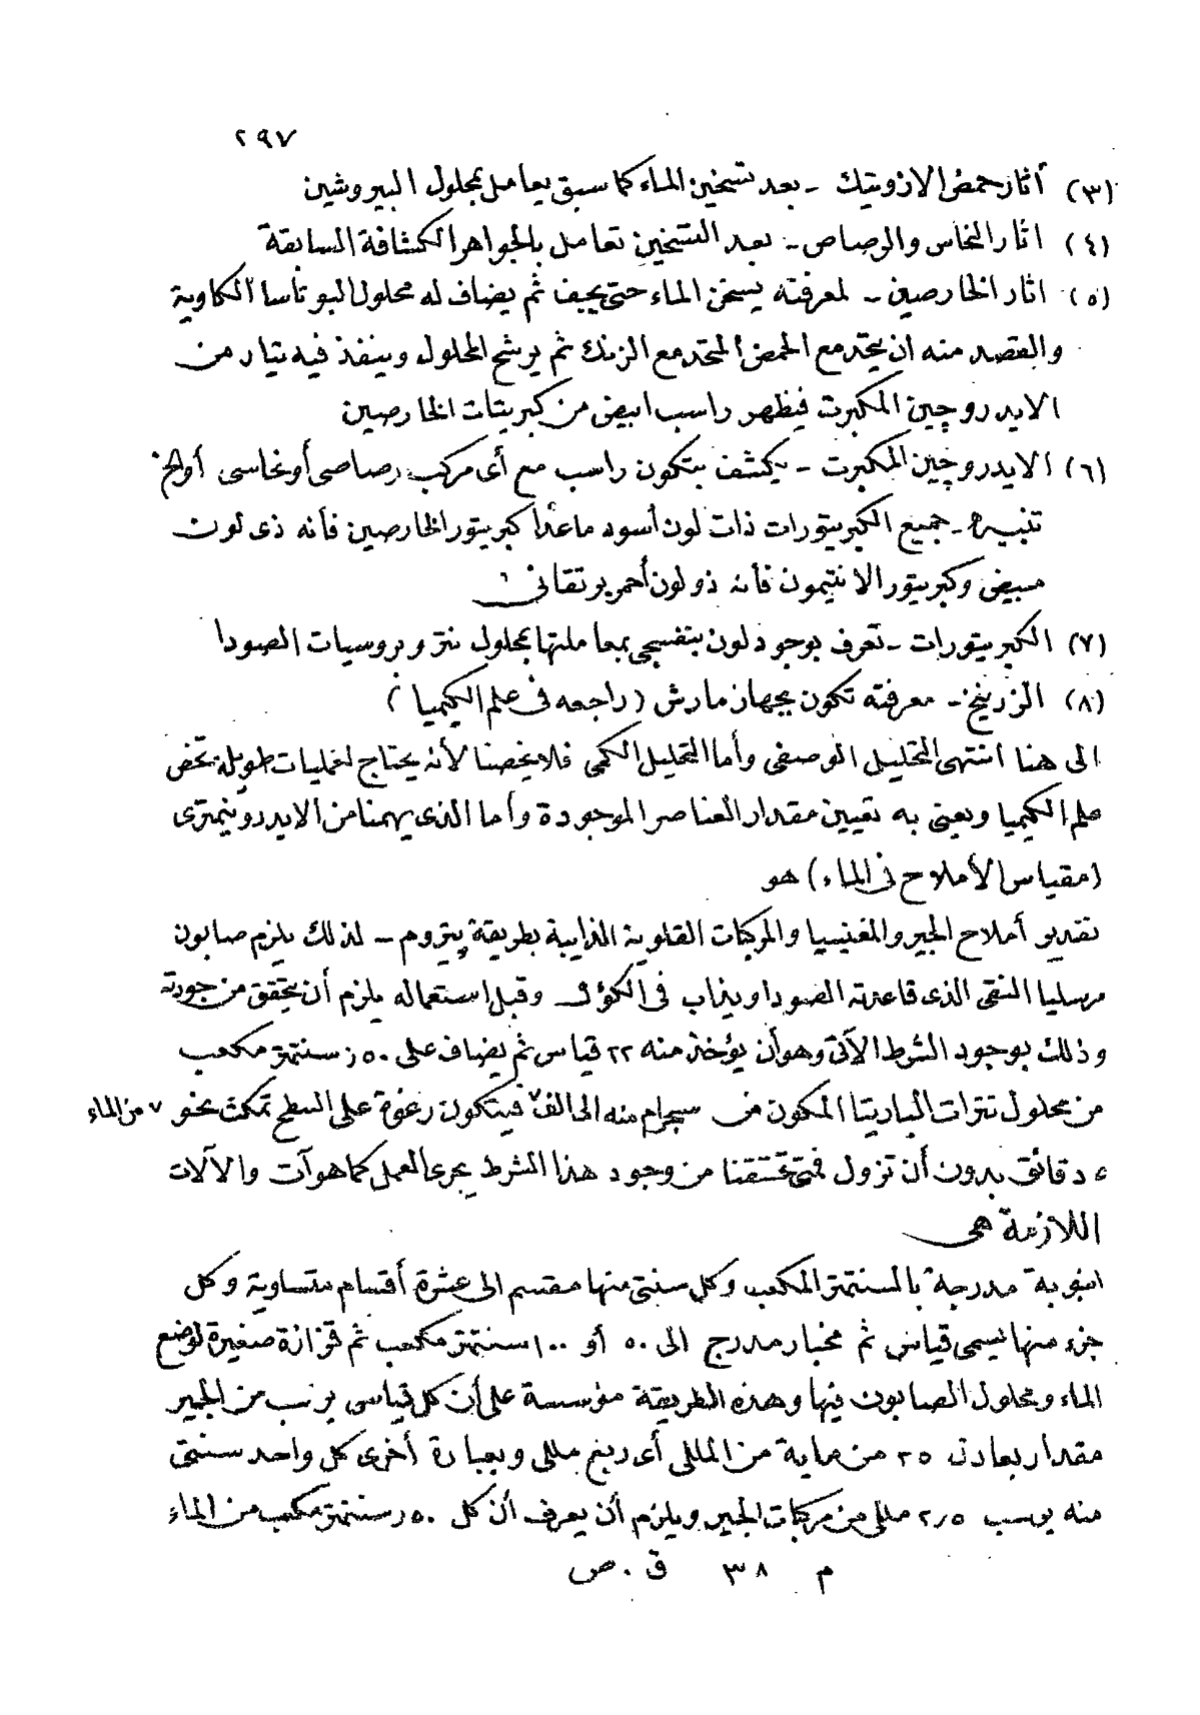 ٢٩٧
(٣) أثار حمض الازوتيك - بعد تسخين الماء كما سبق يعامل بمحلول البيروشين
(٤) اثار النحاس والرصاص - بعد التسخين تعامل بالجواهر الكشافة السابقة
(٥) اثار الخارصين - لمعرفته يسخن الماء حتى يجف ثم يضاف له محلول البوتاسا الكاوية
والقصد منه ان يتحد مع الحمض المتحد مع الزنك ثم يرشح المحلول وينفذ فيه تيار من
الايدروچين المكبرت فيظهر راسب ابيض من كبريتات الخارصين
(٦) الايدروچين المكبرت - يكشف بتكون راسب مع أى مركب رصاصى أو نحاسى أو الخ
تنبيه - جميع الكبريتورات ذات لون أسود ماعدا كبريتور الخارصين فأنه ذى لون
مبيض وكبريتور الانتيمون فأنه ذو لون أحمر برتقانى
(٧) الكبريتورات - تعرف بوجود لون بنفسجى بمعاملتها بمحلول نتروبروسيات الصودا
(٨) الزرنيخ - معرفته تكون بجهاز مارش (راجعه فى علم الكيميا)
الى هنا انتهى التحليل الوصفى وأما التحليل الكمى فلا يخصنا لأنه يحتاج لعمليات طويله تخص
علم الكيميا ويعنى به تعيين مقدار العناصر الموجودة وأما الذى يهمنا من الايدروتيمترى
(مقياس الأملاح فى الماء) هو
تقدير أملاح الجير والمغنيسيا والمركبات القلوية الذايبة بطريقة پتروم - لذلك يلزم صابون
مرسليا النقى الذى قاعدته الصودا ويذاب فى الكؤل وقبل استعماله يلزم أن يتحقق من جودته
وذلك بوجود الشرط الآتى وهو أن يؤخذ منه ٢٢ قياس ثم يضاف على ٥٠ر سنتمتر مكعب
من محلول نترات الباريتا المكون من سجرام منه الى الف فيتكون رغوة على السطح تمكث نحو ٧ من الماء
٤ دقائق بدون أن تزول فمتى تحققنا من وجود هذا الشرط يجرى العمل كما هو آت والآلات
اللازمة هى
انبوبة مدرجة بالسنتمتر المكعب وكل سنتى منها مقسم الى عشرة أقسام متساوية وكل
جزء منها يسمى قياس ثم مخبار مدرج الى ٥٠ أو ١٠٠ سنتمتر مكعب ثم قزازة صغيرة لوضع
الماء ومحلول الصابون فيها وهذه الطريقة مؤسسة على أن كل قياس يرسب من الجير
مقدار يعادل ٢٥ من ماية من المللى أى ربع مللى وبعبارة أخرى كل واحد سنتى
منه يرسب ٢٫٥ مللى من مركبات الجير ويلزم أن يعرف أن كل ٥٠ر سنتمتر مكعب من الماء
م ٣٨ ق . ص